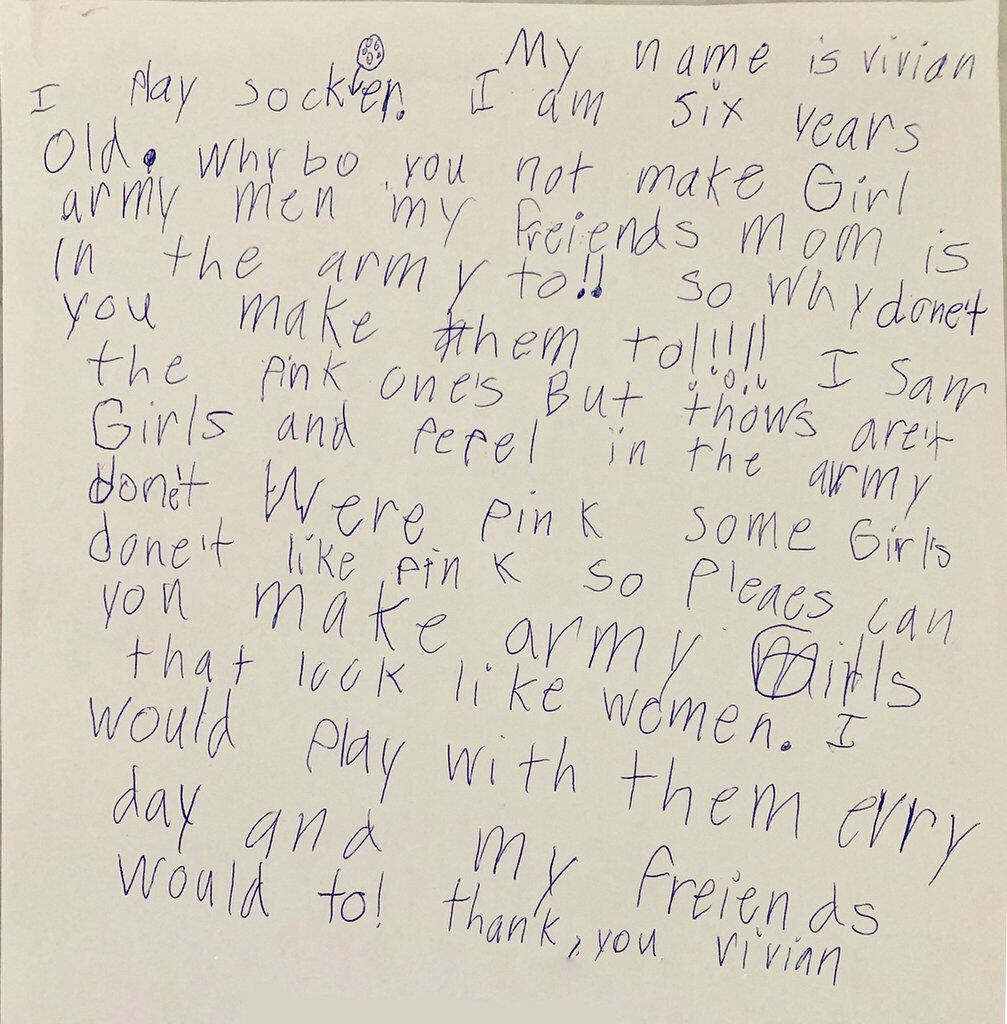 My name is vivian
I play socker. I am six years
Old. Why bo you not make Girl
army men my freiends mom is
in the army to!! so why done't
you make them to!!!!! I Saw
the pink one's But thows are't
Girls and pepel in the army
don't Were pink some Girls
done't like pink so pleaes can
you make army Girls
that look like women. I
would play with them evry
day and my freiends
would to! thank, you vivian